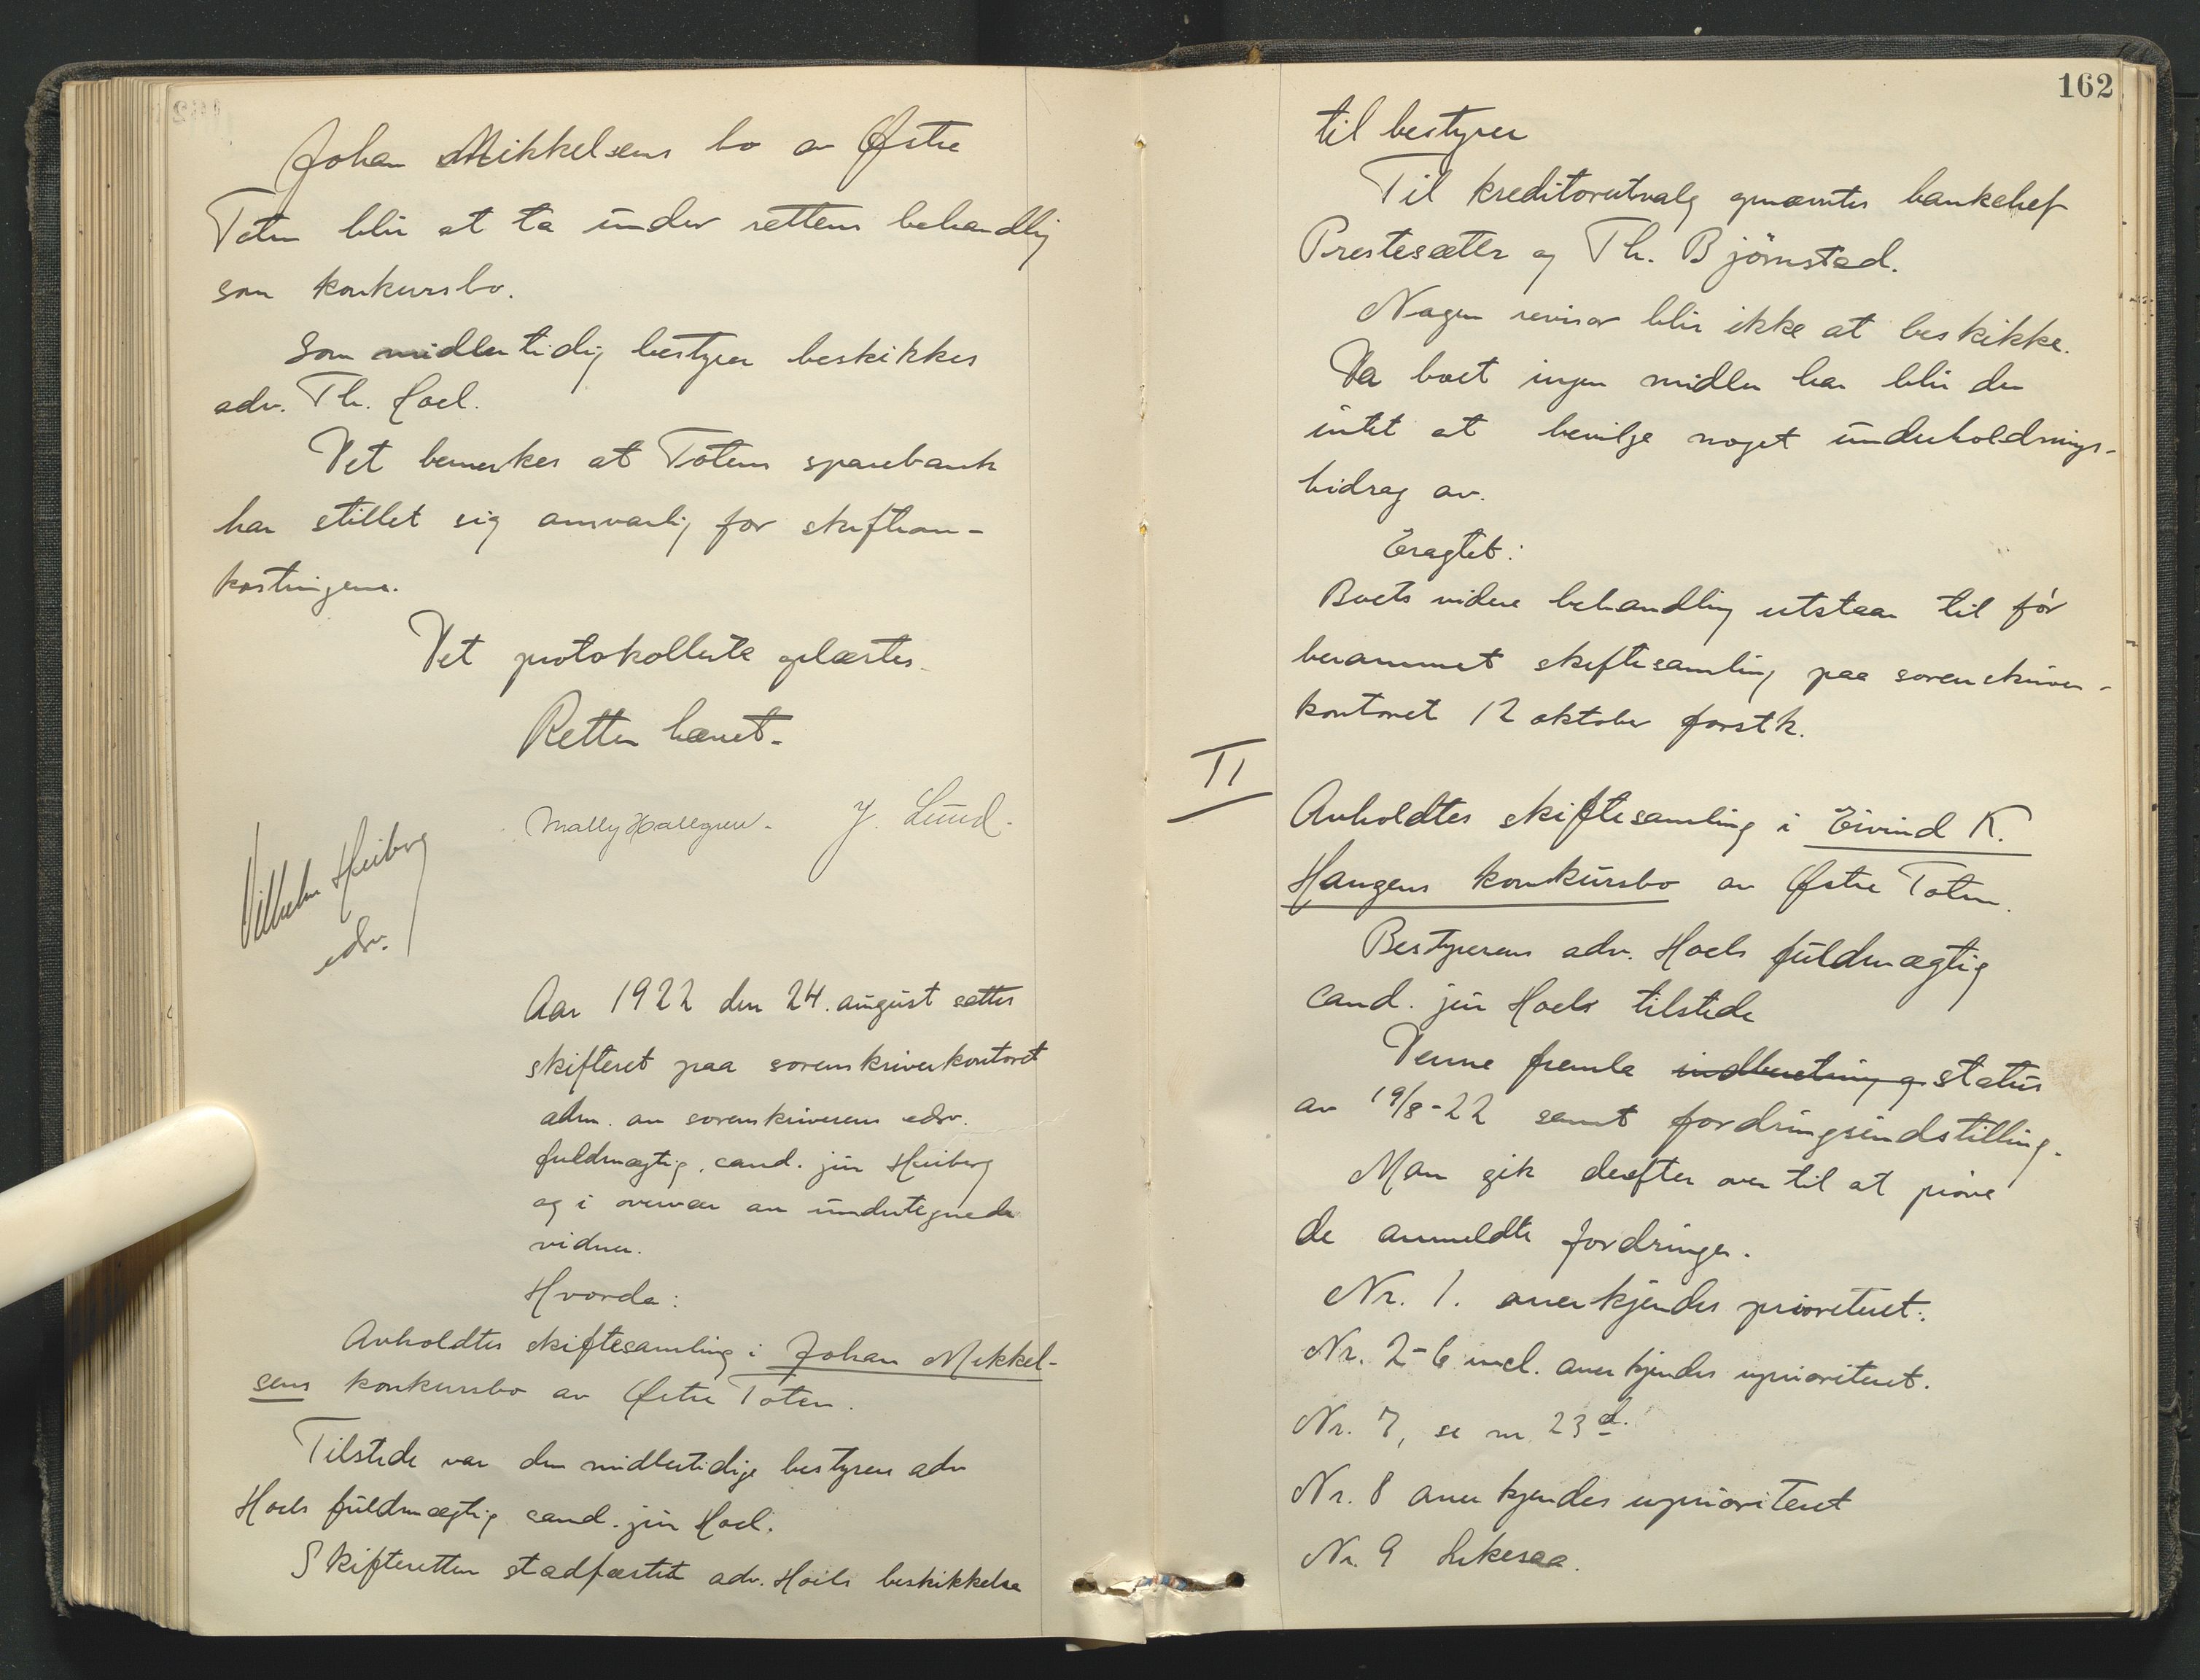 Johan Mikkelsens bo av Østre
Toten blir at ta under rettens behandling
som konkursbo.
Som midlertidig bestyrer beskikkes
adv. Th. Hoel.
Det bemerkes at Totens sparebank
har stillet sig ansvarlig for skifteom-
kostningene.
Det protokollerte oplæstes.
Retten hævet.
Mally Hallgren. J. Lund.
Vilhelm Heiberg
edsv.
Aar 1922 den 24. august sattes
skifteret paa sorenskriverkontoret
adm. av sorenskriverens edsv.
fuldmægtig, cand. jur Heiberg
og i overvær av undertegnede
vidner.
Hvorda:
Avholdtes skiftesamling i Johan Mikkel-
sens konkursbo av Østre Toten.
Tilstede var den midlertidige bestyrers adv
Hoels fuldmægtig cand. jur Hoel.
Skifteretten stadfæstet adv. Hoels beskikkelse
162
til bestyrer
Til kreditorutvalg opnævntes bankchef
Prestesæter og Th. Bjørnstad.
Nogen revisor blir ikke at beskikke.
Da boet ingen midler har blir der
intet at bevilge noget underholdnings-
bidrag av.
Eragtet:
Boets videre behandling utstaar til før
berammet skiftesamling paa sorenskriver-
kontoret 12 oktober førstk.
II
Avholdtes skiftesamling i Eivind K.
Haugens konkursbo av Østre Toten.
Bestyrerens adv. Hoels fuldmægtig
cand. jur Hoels tilstede
Denne fremla indberetning og status
av 19/8-22 samt fordringsindstilling.
Man gik derefter over til at prøve
de anmeldte fordringer.
Nr. 1. anerkjendes prioritert.
Nr. 2-6 incl. anerkjendes uprioritert.
Nr. 7, se nr. 23 d.
Nr. 8 anerkjendes uprioritert
Nr. 9 Likesaa.